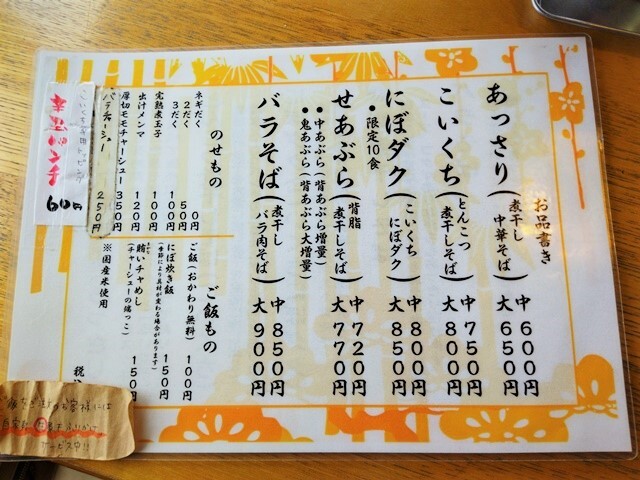 お品書き
あっさり(煮干し中華そば)
中 600円
大 650円
こいくち(とんこつ煮干しそば)
中 750円
大 800円
にぼダク(こいくちにぼダク)
●限定10食
中 800円
大 850円
せあぶら(背脂煮干しそば)
●中あぶら(背あぶら増量)
●鬼あぶら(背あぶら大増量)
中 720円
大 770円
バラそば(煮干しバラ肉そば)
中 850円
大 900円
のせもの
ネギだく
2だく 50円
3だく 100円
完熟煮玉子 100円
出汁メンマ 120円
厚切モモチャーシュー 350円
バラチャーシュー 250円
辛玉パンチ 60円
ご飯もの
ご飯(おかわり無料) 100円
にぼ炊き飯 150円
(季節により具材が変わる場合があります)
賄いチャめし 150円
(チャーシューの端っこ)
※国産米使用
税
サービス中!!